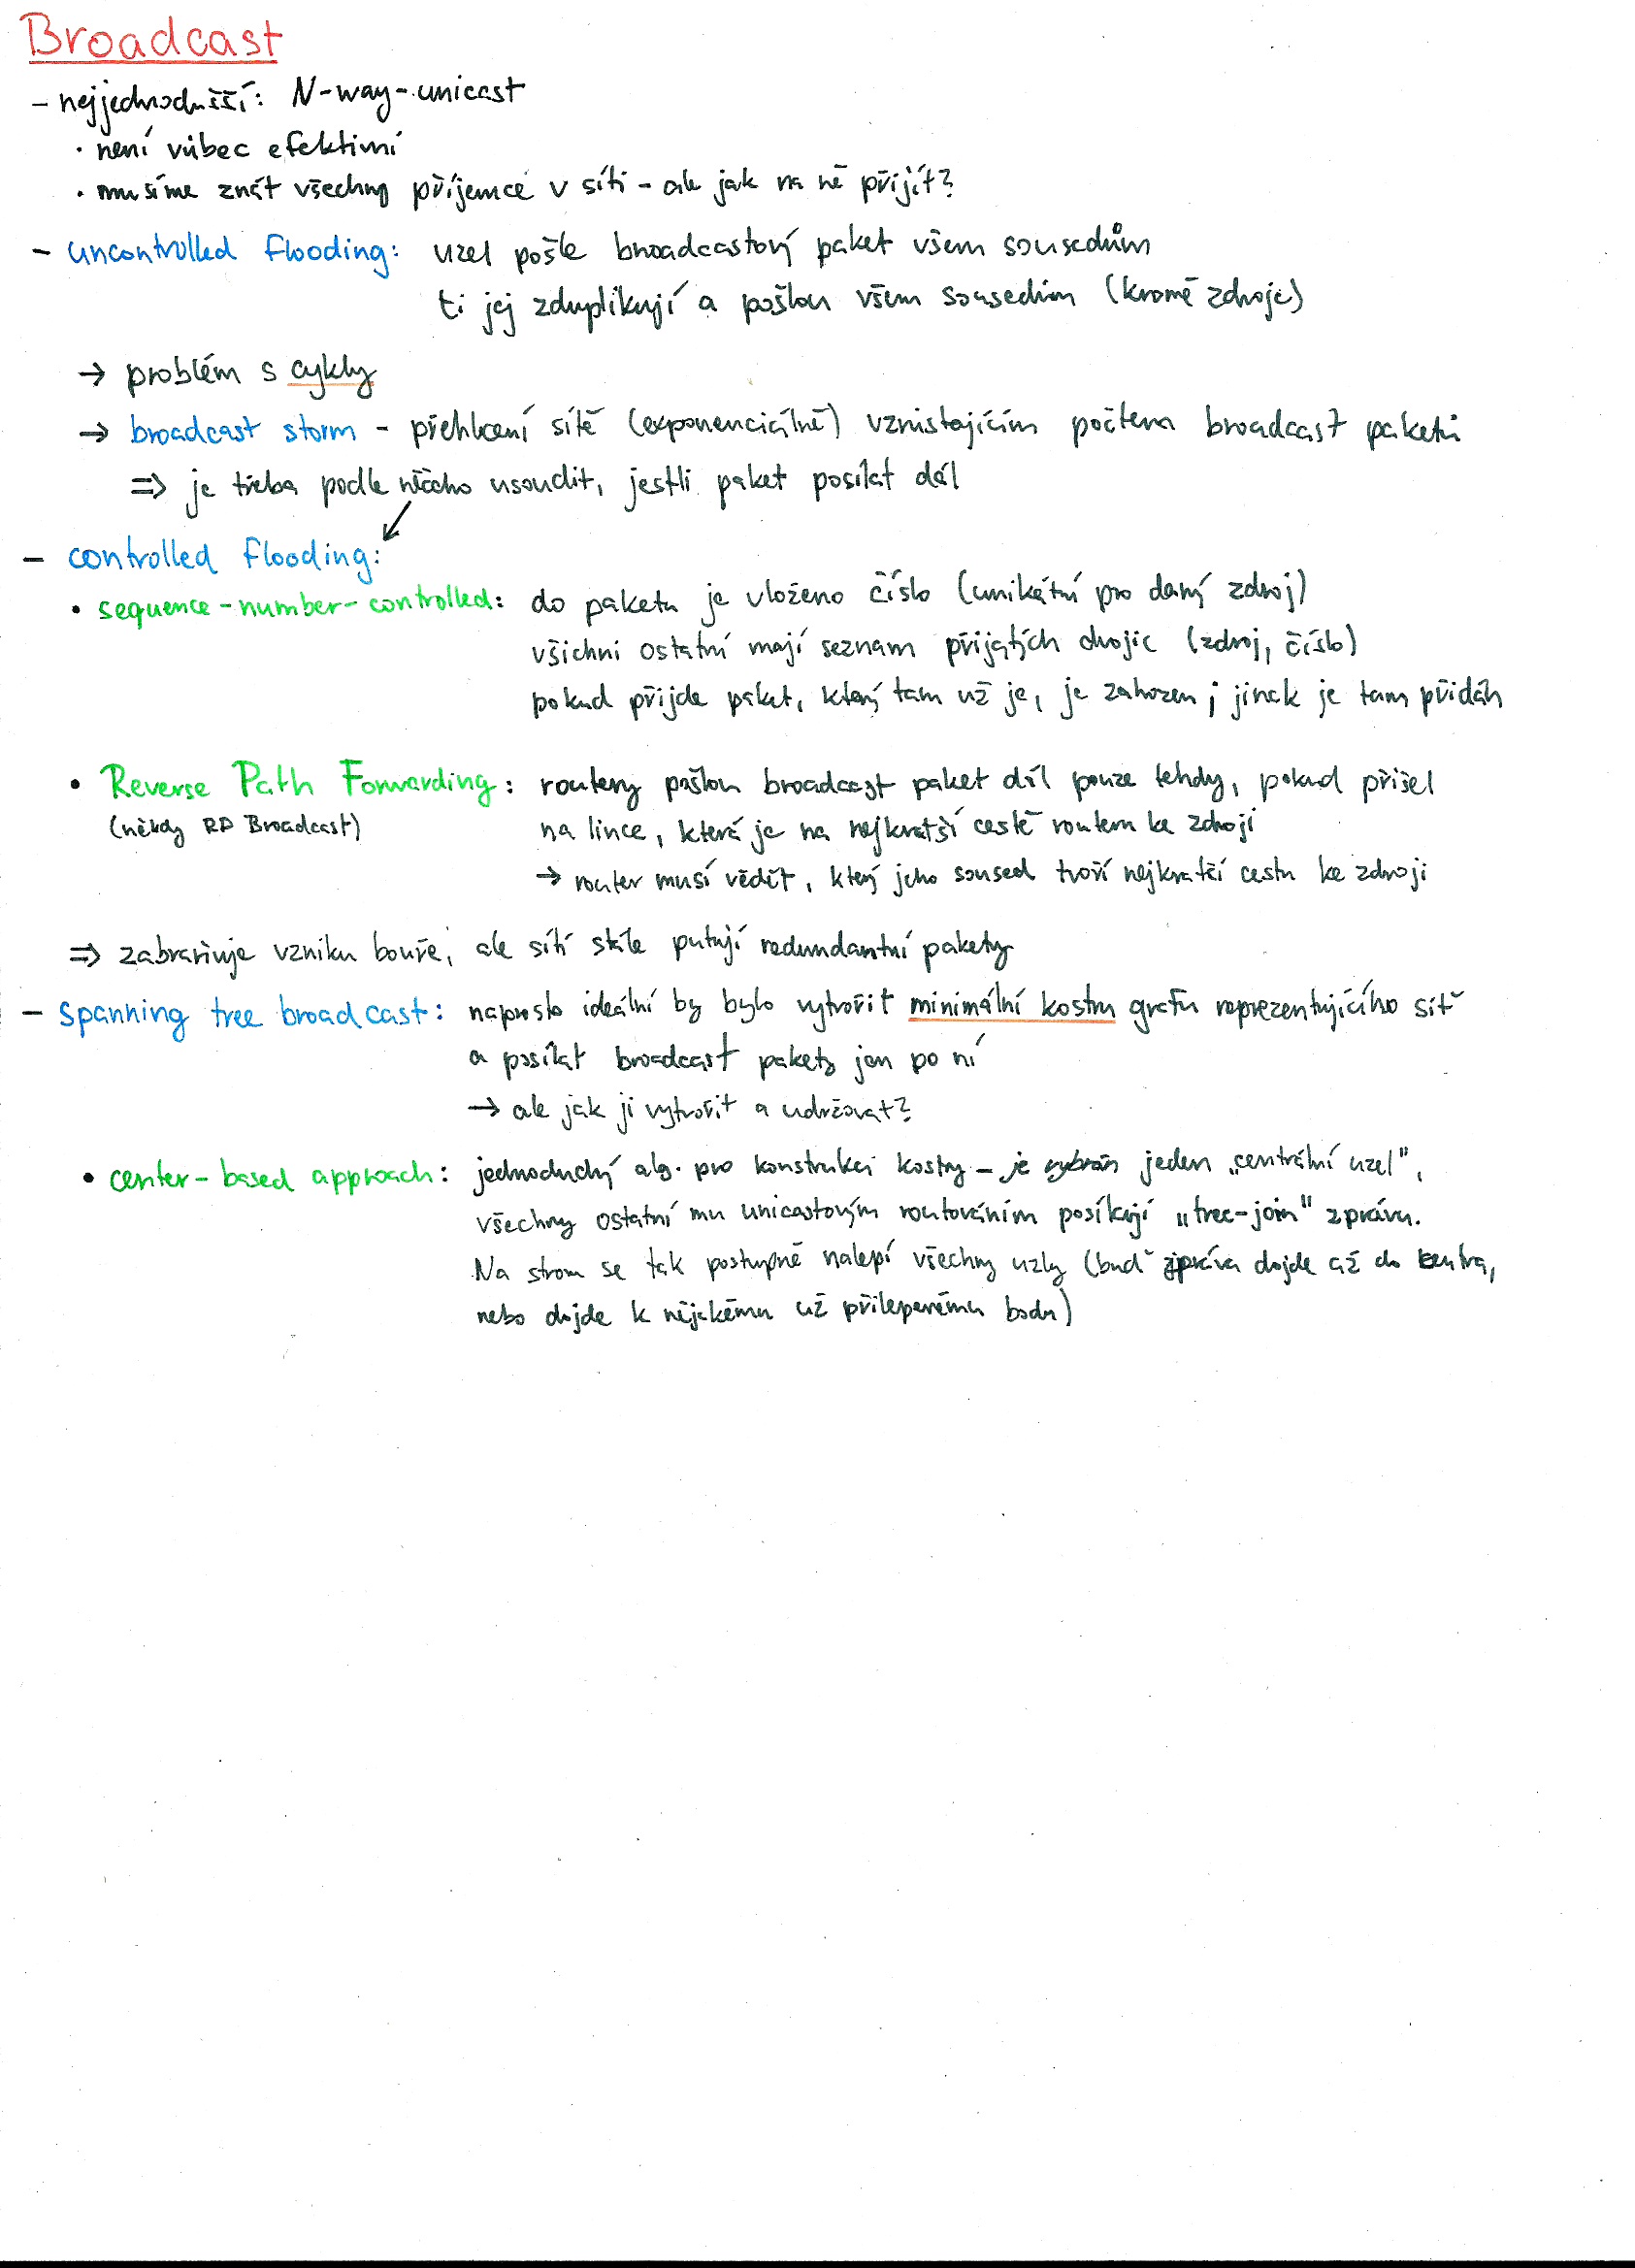 Broadcast
- nejjednodušší: N-way-unicast
• není vůbec efektivní
• musíme znát všechny příjemce v síti - ale jak na ně přijít?
- uncontrolled flooding: uzel pošle broadcastový paket všem sousedům
ti jej zduplikují a pošlou všem sousedům (kromě zdroje)
→ problém s cykly
→ broadcast storm - přehlcení sítě (exponenciálně) vzrůstajícím počtem broadcast paketů
⇒ je třeba podle něčeho usoudit, jestli paket posílat dál
- controlled flooding:
• sequence-number-controlled: do paketu je vloženo číslo (unikátní pro daný zdroj)
všichni ostatní mají seznam přijatých dvojic (zdroj, číslo)
pokud přijde paket, který tam už je, je zahozen; jinak je tam přidán
• Reverse Path Forwarding: routery pošlou broadcast paket dál pouze tehdy, pokud přišel
(někdy RP Broadcast) na lince, která je na nejkratší cestě routeru ke zdroji
→ router musí vědět, který jeho soused tvoří nejkratší cestu ke zdroji
⇒ zabraňuje vzniku bouře, ale sítí stále putují redundantní pakety
- spanning tree broadcast: naprosto ideální by bylo vytvořit minimální kostru grafu reprezentujícího síť
a posílat broadcast pakety jen po ní
→ ale jak ji vytvořit a udržovat?
• center-based approach: jednoduchý alg. pro konstrukci kostry - je vybrán jeden „centrální uzel",
všechny ostatní mu unicastovým routováním posíkají „tree-join" zprávu.
Na strom se tak postupně nalepí všechny uzly (buď zpráva dojde až do centra,
nebo dojde k nějakému už přilepenému bodu)